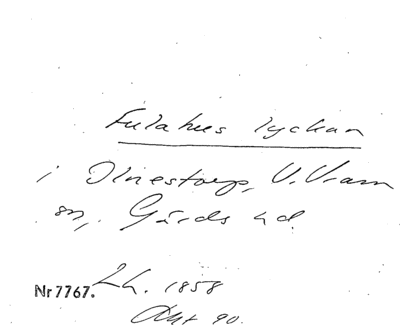 Fulahus lyckan
i Olnestorp, V. Vram
sn, Gärds hd.
Lh. 1858
Nr 7767.
Akt 90.